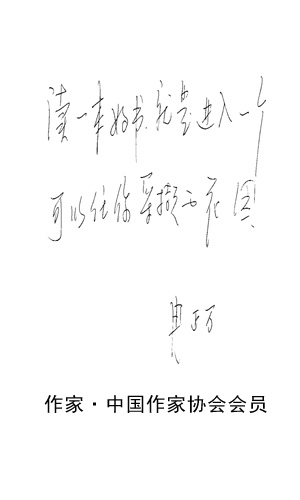 读一本好书,就是进入一个
可以任你采撷的花园
冉正万
作家·中国作家协会会员